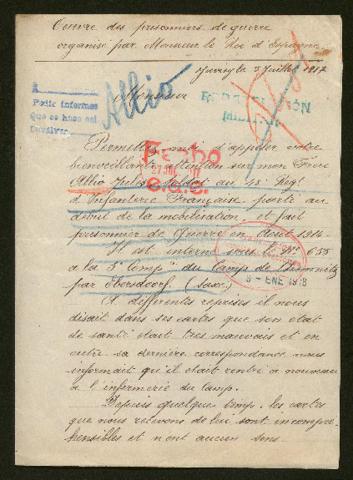 Œuvre des prisonniers de guerre
organisé par Monsieur le Roi d'Espagne
Juillet 1917
A
Pedir informes
que se hace así
Allio
Monsieur
REPRESENTACIÓN
MILITAR
Permettez moi d'appeler votre
bienveillante attention sur mon Frère
Allio Jules soldat au Régt
d'Infanterie Française parti au
début de la mobilisation et fait
prisonnier de Guerre en Août 1914.
Il est interné sous le N° 655
à la 5e Comp. du Camp de Chemnitz
par Ebersdorf. (Saxe)
5 - ENE 1918
A différentes reprises il nous
disait dans ses cartes que son état
de santé était très mauvais et en
outre sa dernière correspondance nous
informait qu'il était rentré à nouveau
à l'infirmerie du camp.
Depuis quelque temps les cartes
que nous recevons de lui sont incompré-
hensibles et n'ont aucun sens.